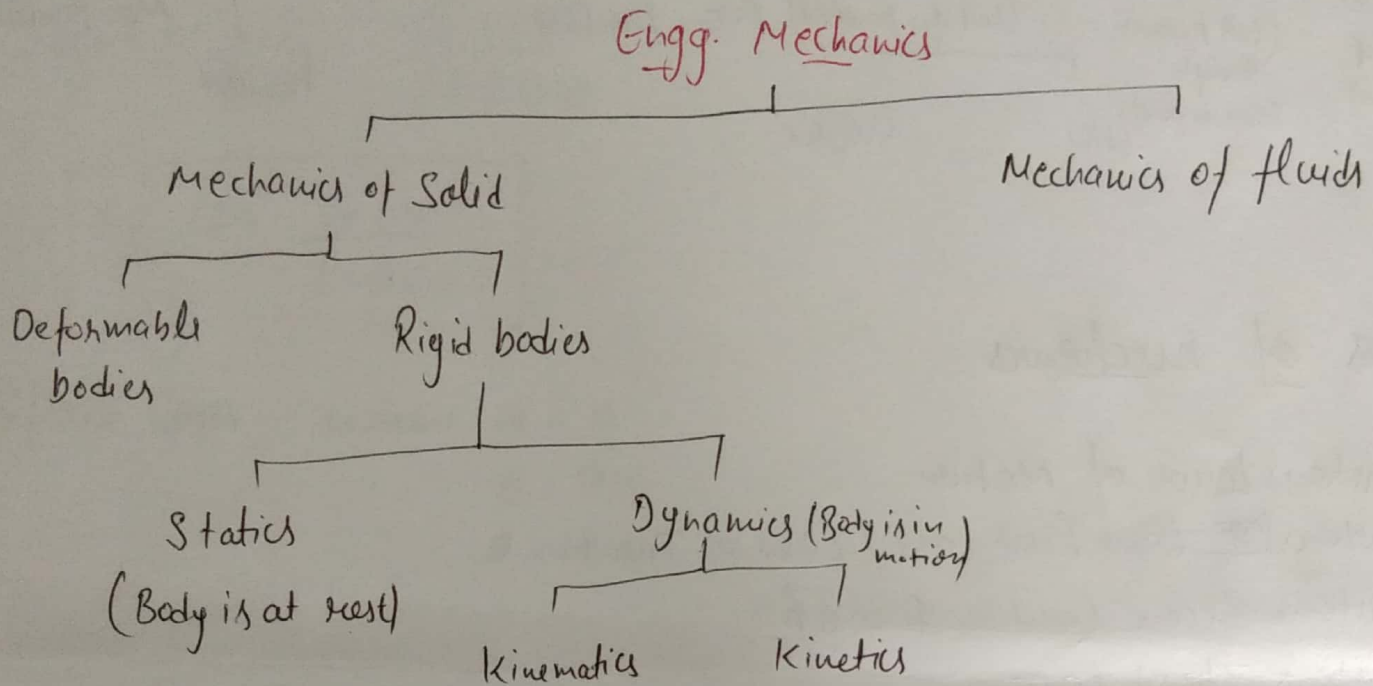 Engg. Mechanics
Mechanics of Solid
Mechanics of fluids
Deformable
bodies
Rigid bodies
Statics
(Body is at rest)
Dynamics (Body is in
motion)
Kinematics
Kinetics